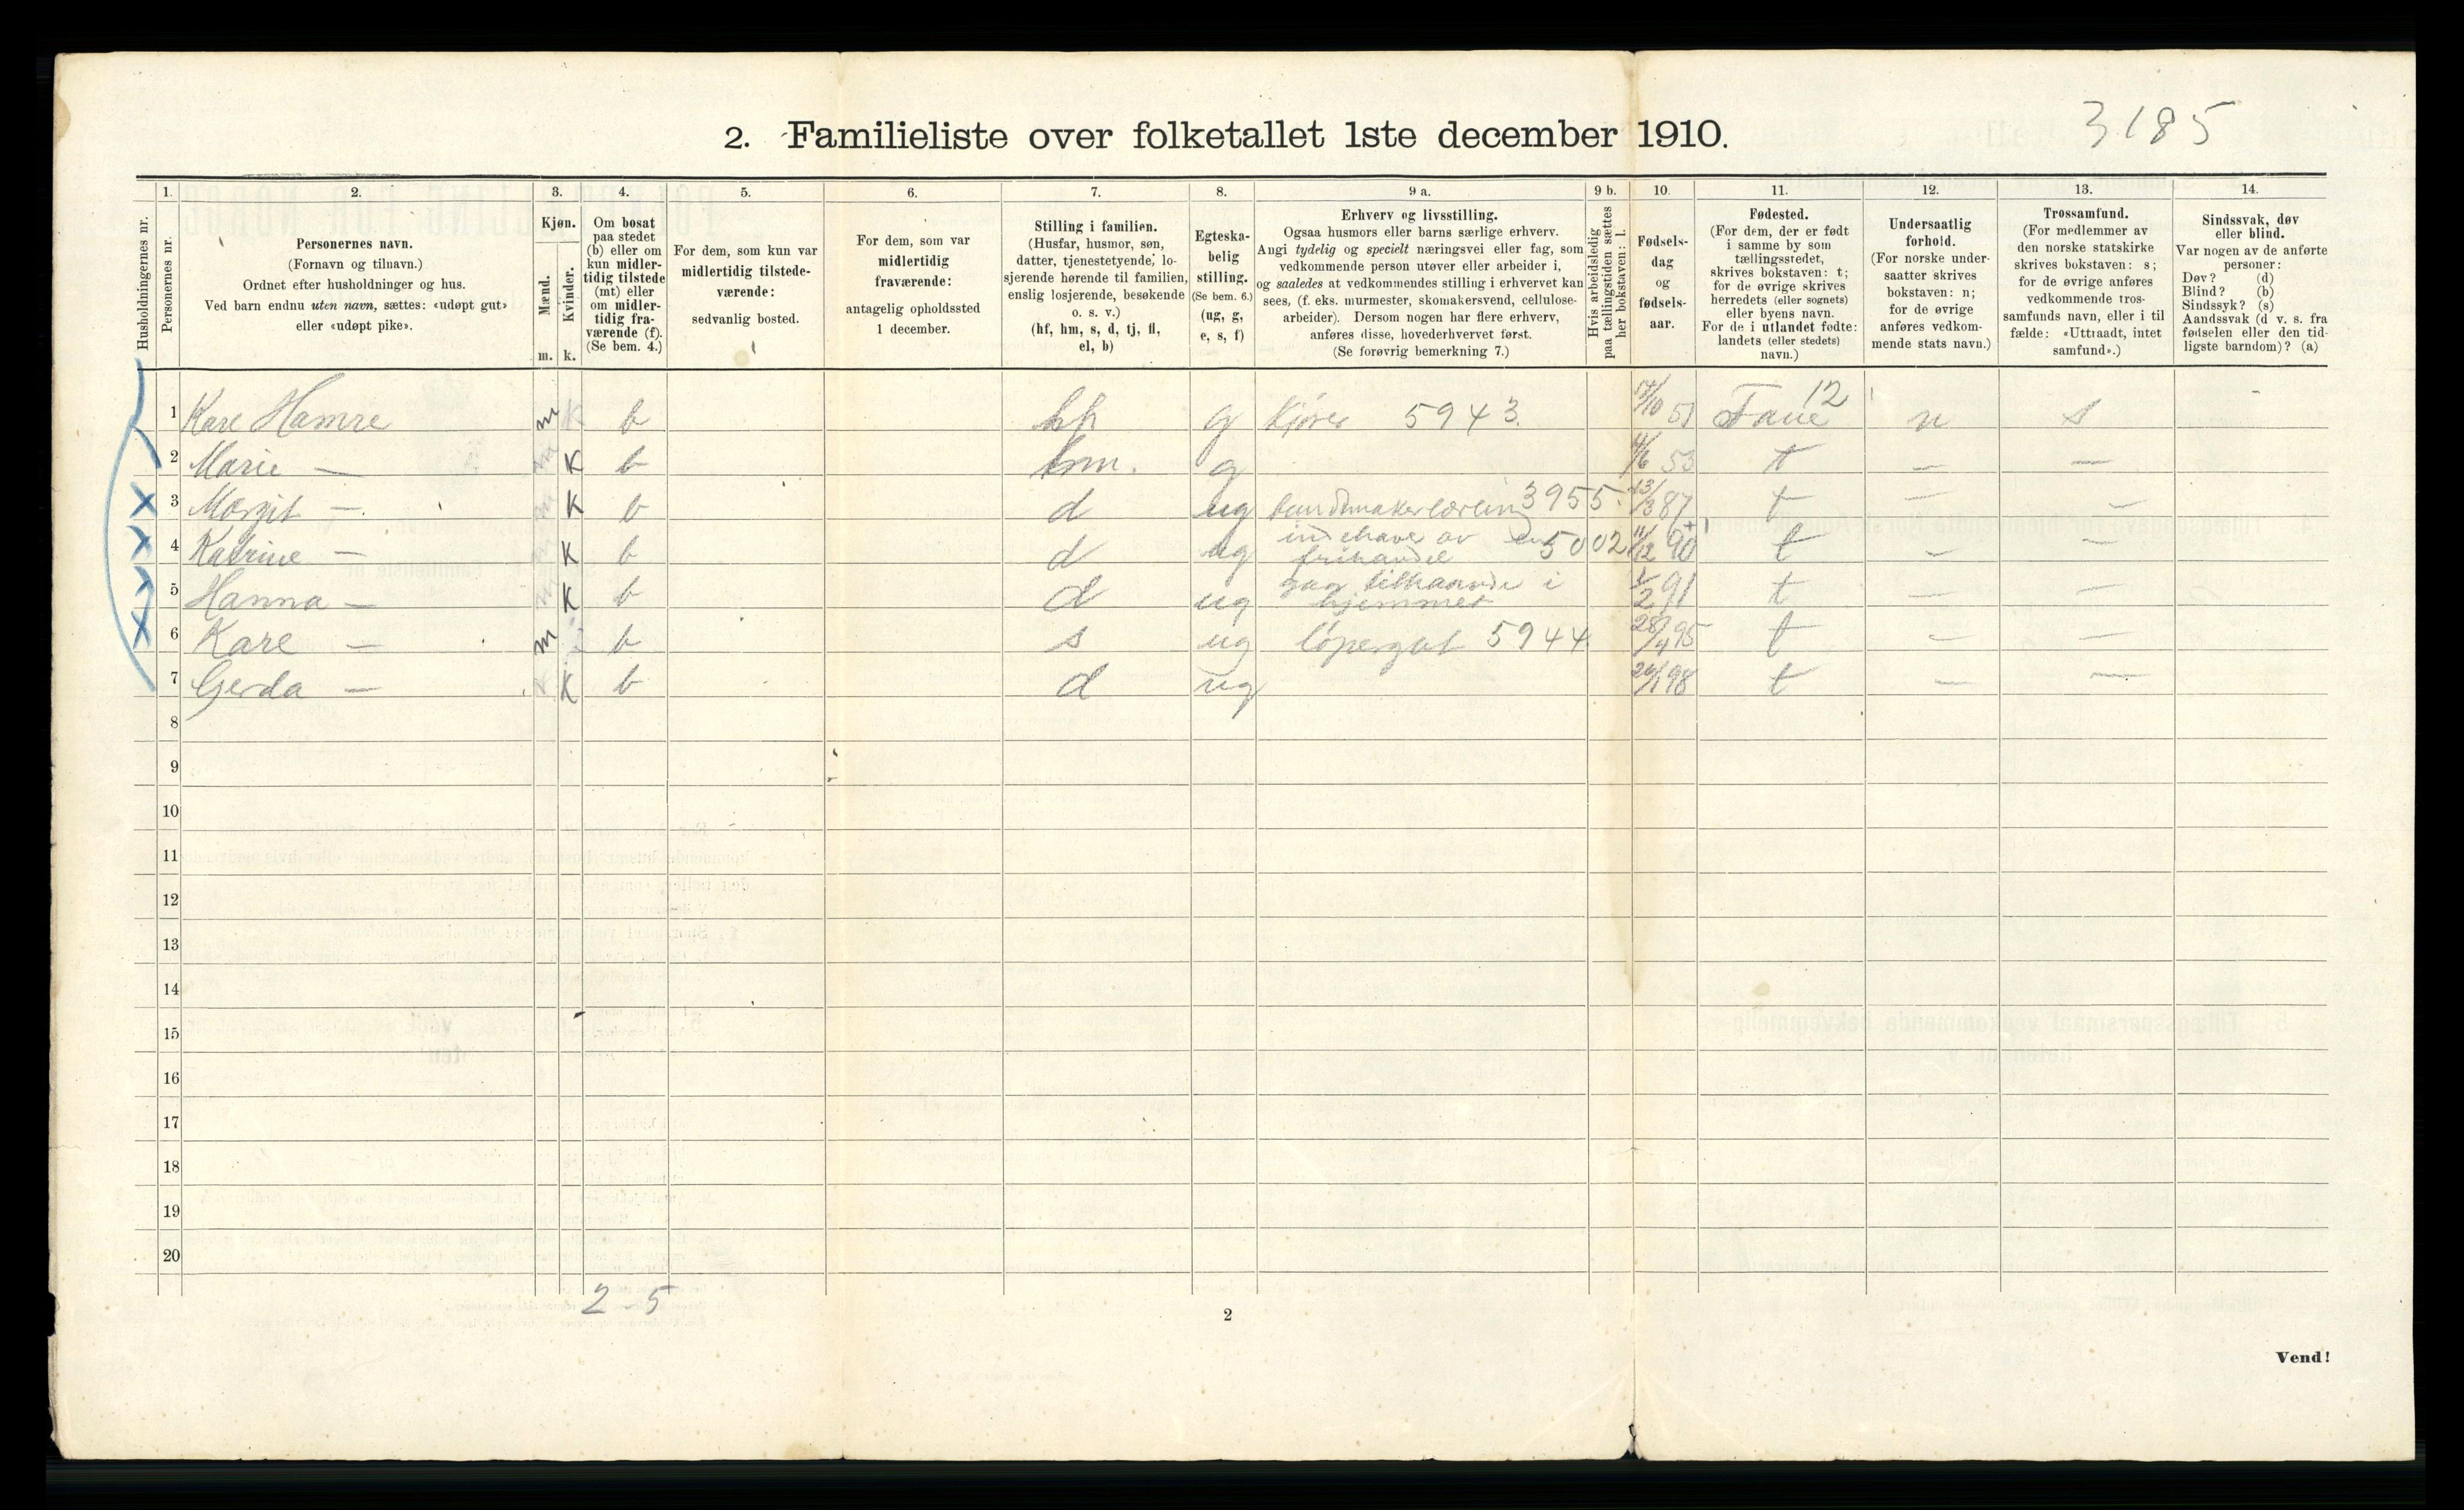 3185
2. Familieliste over folketallet 1ste december 1910.
1. 2. 3. 4. 5. 6. 7. 8. 9 a. 9 b. 10. 11. 12. 13. 14.
Husholdningernes nr.
Personernes nr.
Personernes navn.
(Fornavn og tilnavn.)
Ordnet efter husholdninger og hus.
Ved barn endnu uten navn, sættes: «udøpt gut»
eller «udøpt pike».
Kjøn.
Mænd.
Kvinder.
m. k.
Om bosat
paa stedet
(b) eller om
kun midler-
tidig tilstede
(mt) eller
om midler-
tidig fra-
værende (f).
(Se bem. 4.)
For dem, som kun var
midlertidig tilstede-
værende:
sedvanlig bosted.
For dem, som var
midlertidig
fraværende:
antagelig opholdssted
1 december.
Stilling i familien.
(Husfar, husmor, søn,
datter, tjenestetyende, lo-
sjerende hørende til familien,
enslig losjerende, besøkende
o. s. v.)
(hf, hm, s, d, tj, fl,
el, b)
Egteska-
belig
stilling.
(Se bem. 6.)
(ug, g,
e, s, f)
Erhverv og livsstilling.
Ogsaa husmors eller barns særlige erhverv.
Angi tydelig og specielt næringsvei eller fag, som
vedkommende person utøver eller arbeider i,
og saaledes at vedkommendes stilling i erhvervet kan
sees, (f. eks. murmester, skomakersvend, cellulose-
arbeider). Dersom nogen har flere erhverv,
anføres disse, hovederhvervet først.
(Se forøvrig bemerkning 7.)
Hvis arbeidsledig
paa tællingstiden sættes
her bokstaven: l.
Fødsels-
dag
og
fødsels-
aar.
Fødested.
(For dem, der er født
i samme by som
tællingsstedet,
skrives bokstaven: t;
for de øvrige skrives
herredets (eller sognets)
eller byens navn.
For de i utlandet fødte:
landets (eller stedets)
navn.)
Undersaatlig
forhold.
(For norske under-
saatter skrives
bokstaven: n;
for de øvrige
anføres vedkom-
mende stats navn.)
Trossamfund.
(For medlemmer av
den norske statskirke
skrives bokstaven: s;
for de øvrige anføres
vedkommende tros-
samfunds navn, eller i til
fælde: «Uttraadt, intet
samfund».)
Sindssvak, døv
eller blind.
Var nogen av de anførte
personer:
Døv? (d)
Blind? (b)
Sindssyk? (s)
Aandssvak (d v. s. fra
fødselen eller den tid-
ligste barndom)? (a)
1 Kare Hamre m b hf g Kjører 5943. /10 51 Fane 12 n s
2 Marie — K b hm. g 4/6 53 t — —
3 Margit — K b d ug bundtmakerlærling 3955. 13/3 87 t — —
4 Katrine — K b d ug indehaver av en frihandel 5002 11/12 90 t — —
5 Hanna — K b d ug gaar tilhaande i hjemmet 1/2 91 t — —
6 Kare — m b s ug løpergut 5944. 28/4 95 t — —
7 Gerda — K b d ug 26/1 98 t — —
8
9
10
11
12
13
14
15
16
17
18
19
20
2 - 5
2
Vend!